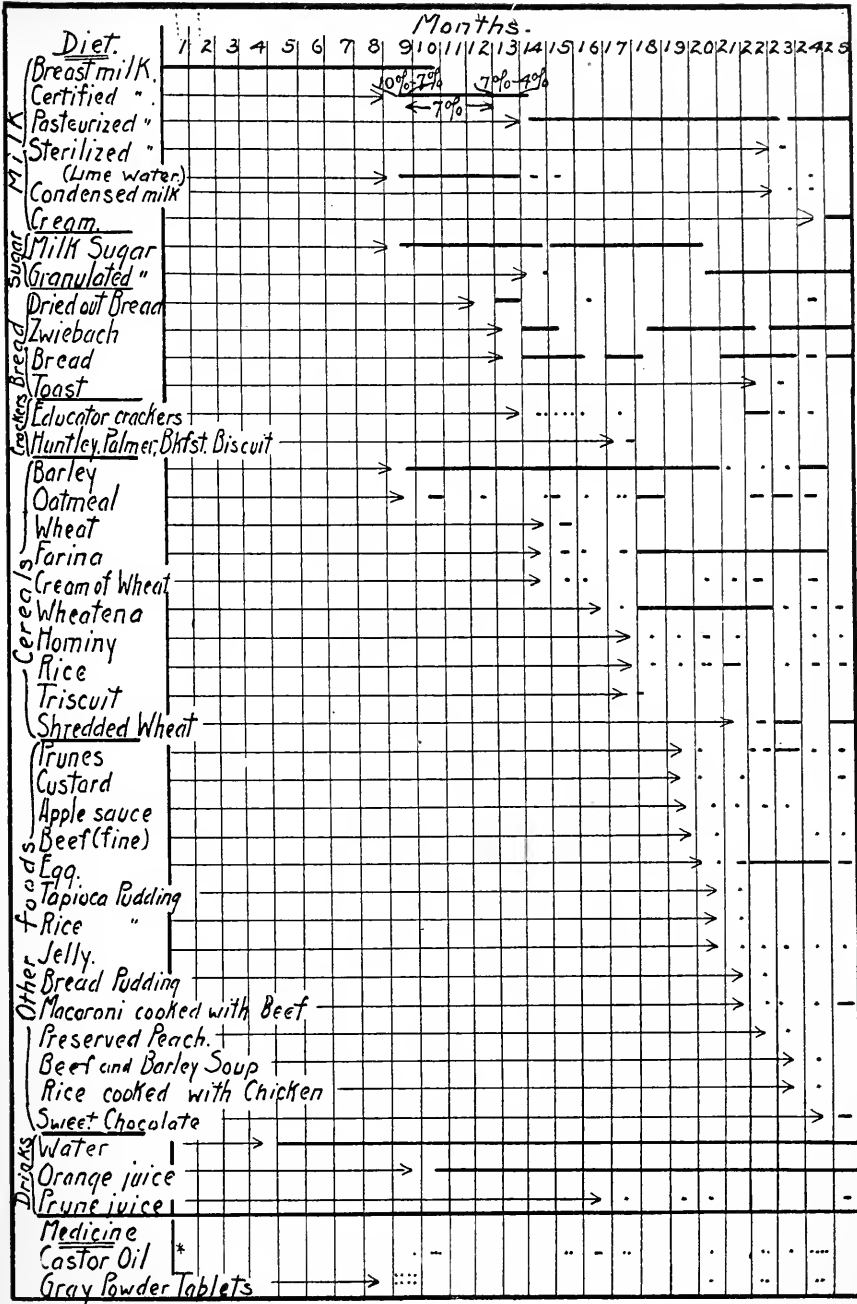 Months.
Diet. 1 2 3 4 5 6 7 8 9 10 11 12 13 14 15 16 17 18 19 20 21 22 23 24 25
Milk
Breast milk.
10%-7% 7%-4%
Certified " .
7%
Pasteurized "
Sterilized "
(Lime water.)
Condensed milk
Cream.
Sugar
Milk Sugar
Granulated "
Bread
Dried out Bread
Zwiebach
Bread
Toast
Crackers
Educator crackers
Huntley, Palmer, Bkfst. Biscuit
Cereals
Barley
Oatmeal
Wheat
Farina
Cream of Wheat
Wheatena
Hominy
Rice
Triscuit
Shredded Wheat
Other foods
Prunes
Custard
Apple sauce
Beef (fine)
Egg.
Tapioca Pudding
Rice "
Jelly.
Bread Pudding
Macaroni cooked with Beef
Preserved Peach.
Beef and Barley Soup
Rice cooked with Chicken
Sweet Chocolate
Drinks
Water
Orange juice
Prune juice
Medicine
Castor Oil *
Gray Powder Tablets